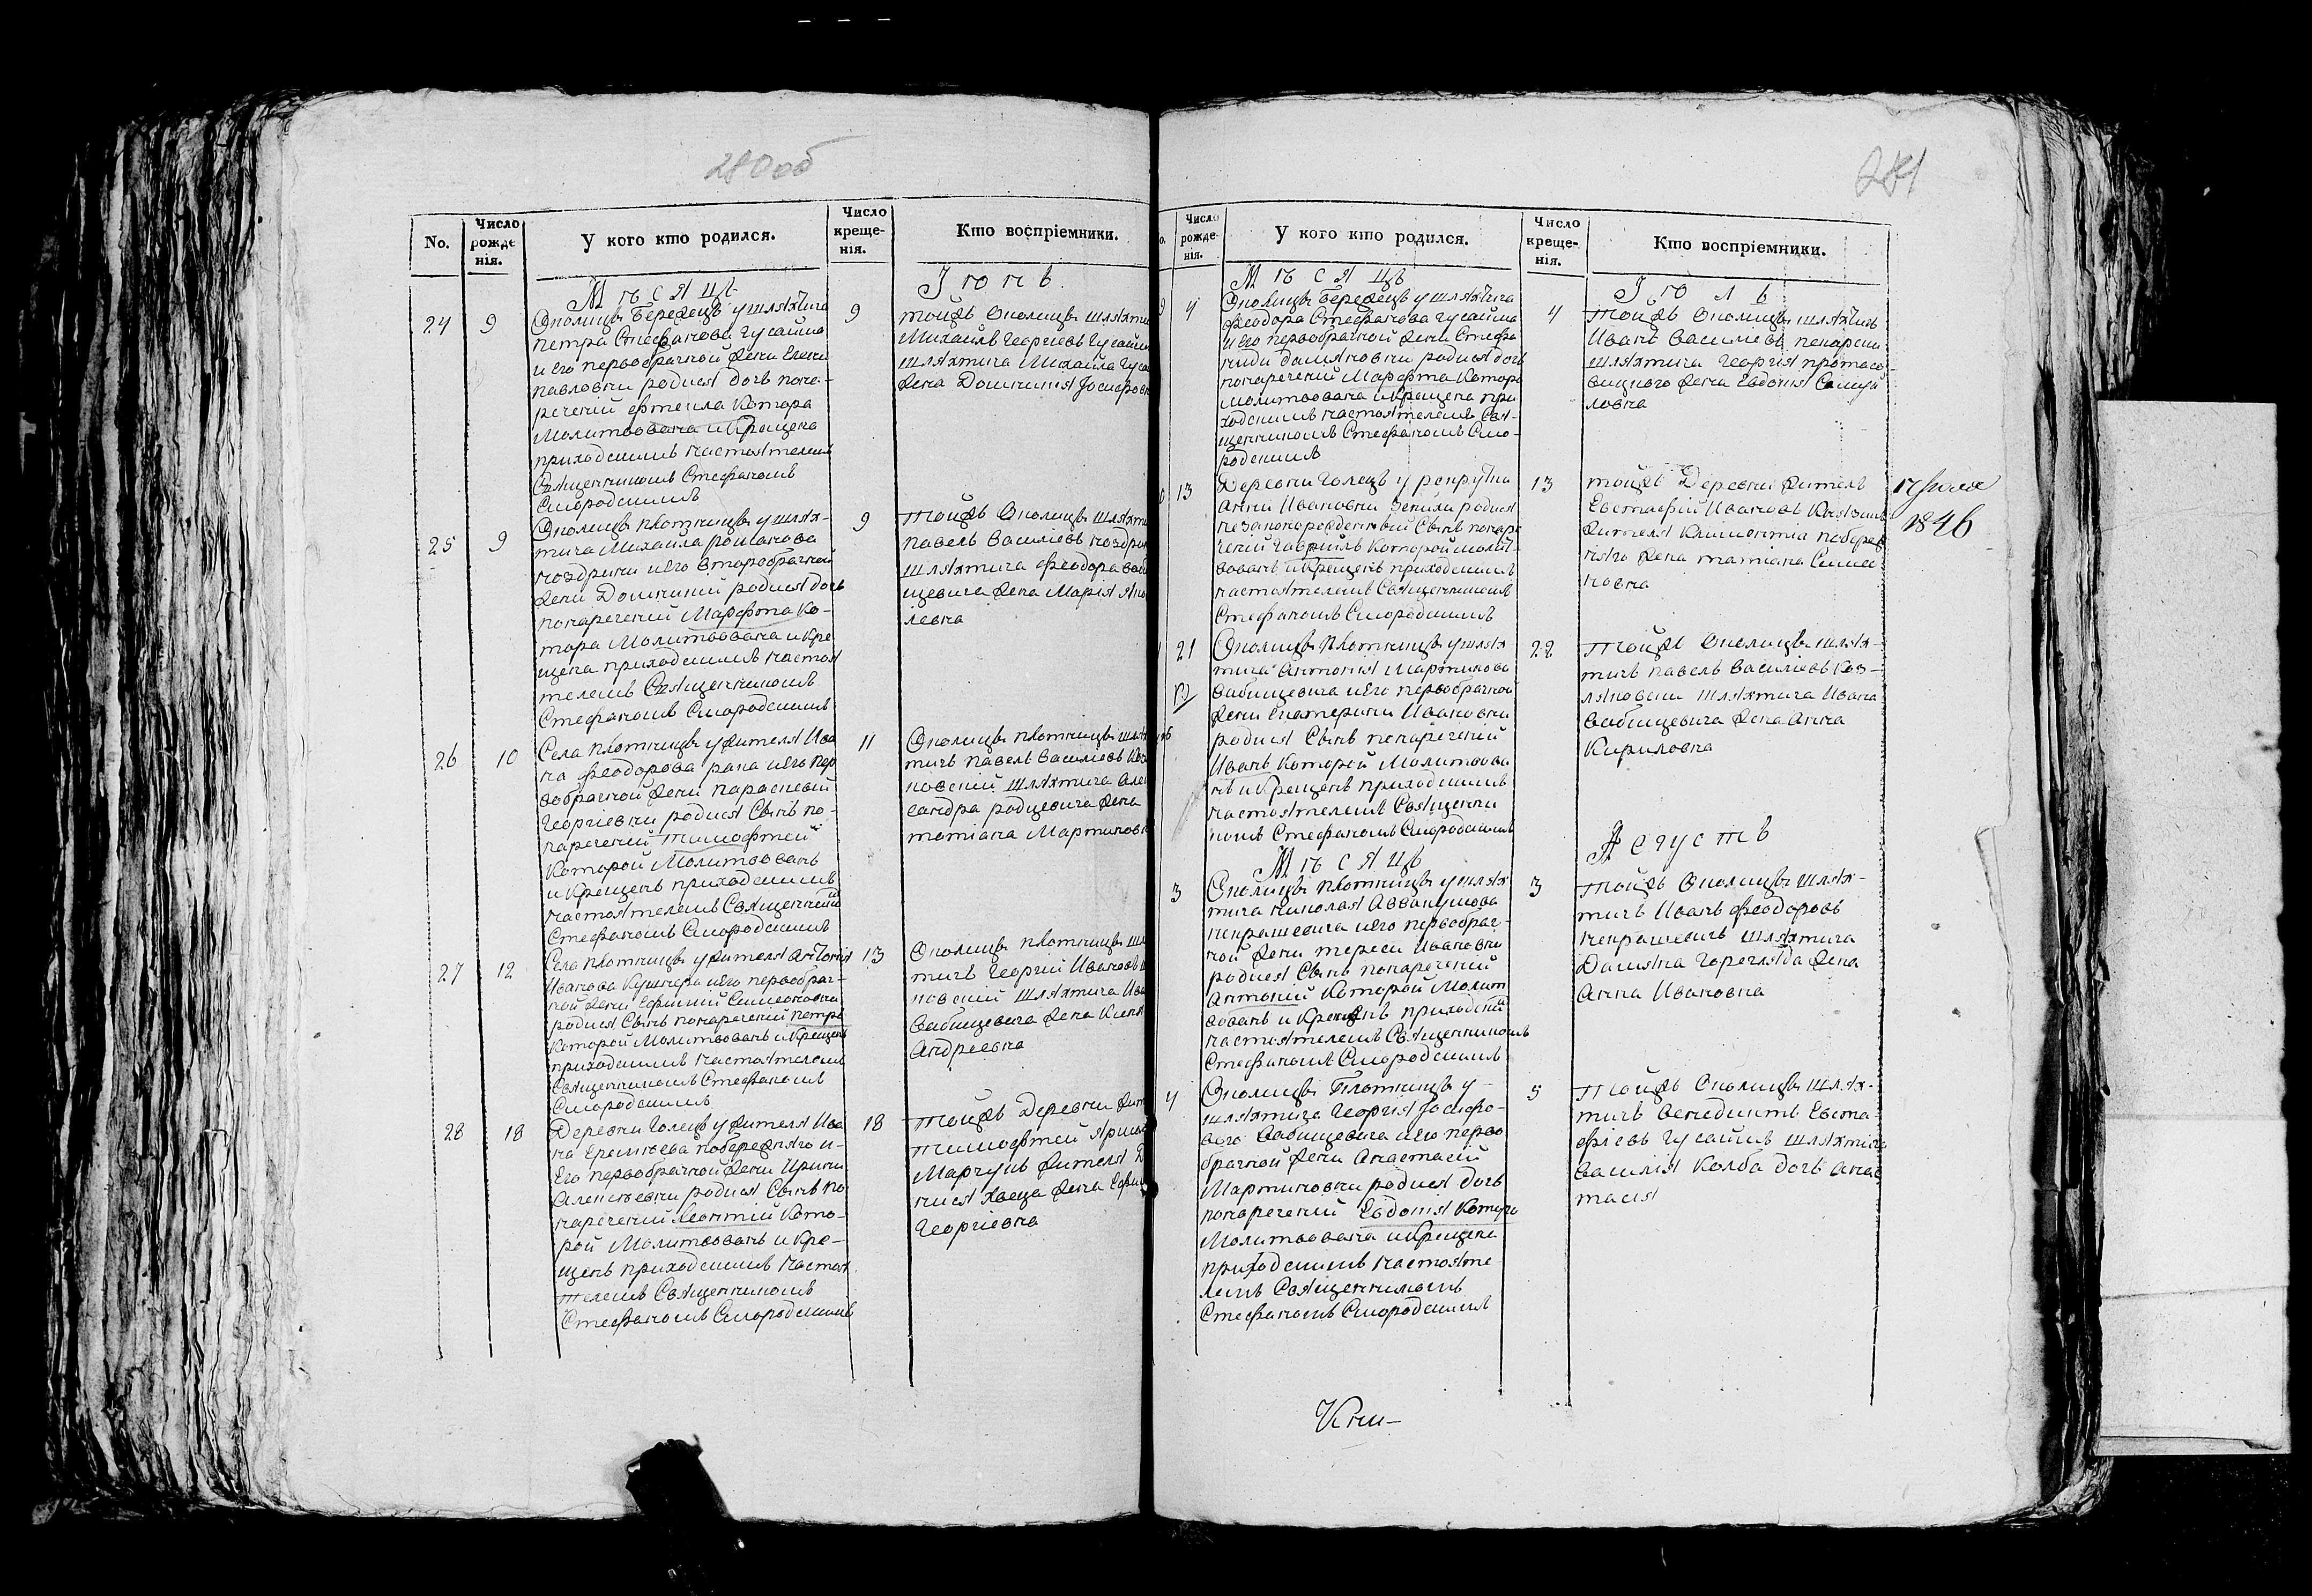 280 об
No.
Число рожденія.
У кого кто родился.
Число крещенія.
Кто воспріемники.
Мѣсяцъ
Іюнь
24
9
Околицы Бережецъ у шляхтича
петра Стефанова гусайма
и его первобрачной жены Елены
павловны родися дочь нона-
реченна фтекла котора
Молитвована и Крещена
приходскимъ настоятелемъ
Священникомъ Стефаномъ
Смородскимъ
9
тоижъ Околицы
Михаилъ Георгіевъ
шляхтича Михаила
жена Домникия
25
9
Околицы плотницы у шлях-
тича Михаила романова
ноздрины и его второбрачной
жены Домникии родися дочь
понареченна Марфта ко-
тора Молитвована и Кре
щена приходскимъ настоя
телемъ Священникомъ
Стефаномъ Смородскимъ
9
тоижъ Околицы
павелъ Василіевъ
шляхтича феодора
жена Марія
левна
26
10
Села плотницы у жителя Ива
на феодорова рака и его пер
вобрачной жены параскевіи
Георгіевны родися Сынъ по-
нареченій тимофтей
Которой Молитвованъ
и Крещенъ приходскимъ
настоятелемъ Священником
Стефаномъ Смородскимъ
11
Околицы плотницы
тичъ павелъ Василіевъ
новскій шляхтича
сандра родцевича жена
татіана Мартиновн
27
12
Села плотницы у жителя Антонія
Иванова Кушнера и его первобрач-
ной жены Ефиміи Симеоновны
родися Сынъ понареченій петръ
Которой Молитвованъ и Крещенъ
приходскимъ настоятелемъ
Священникомъ Стефаномъ
Смородскимъ
13
Околицы плотницы
тичъ Георгій Ивановъ
новскій шляхтича
Вабищевича жена
Андреевна
28
18
Деревни Голецъ у жителя Ива
на Ермнъева побережнаго и
Его первобрачной жены Ирины
Алексъевны родися Сынъ по
нареченій Леонтій Кото-
рой Молитвованъ и Кре-
щенъ приходскимъ настоя
телемъ Священникомъ
Стефаномъ Смородскимъ
18
тоижъ Деревни
тимофтей
Марчукъ жителя
хвеца жена
Георгіевна
281
Число рожденія.
У кого кто родился.
Число крещенія.
Кто воспріемники.
Мѣсяцъ
Іюль
4
Околицы Бережецъ у шляхтича
феодора Стефанова гусайма
и Его первобрачной жены Стефа
ниды Дамяновны родися дочь
понареченій Марфта котора
молитвована и Крещена при
ходскимъ настоятелемъ Свя-
щенникомъ Стефаномъ Смо-
родскимъ
4
тоижъ Околицы шляхтичъ
Иванъ Василіевъ
шляхтича Георгія протасо-
вицкого жена Евдокія Самуй
ловна
13
Деревни Голецъ у рекрутки
Анны Ивановны родися
незаконорожденный Сынъ понаре
ченій Гавріилъ Которой молит-
вованъ и Крещенъ приходскимъ
настоятелемъ Священникомъ
Стефаномъ Смородскимъ
13
тоижъ Деревни житель
Евстафій Ивановъ
жителя Климонтіа побереж
наго жена татіана Симео
новна
17 Іюля
1846
21
Околицы плотницы у шлях
тича Антонія Мартинова
Вабищевича и Его первобрачной
жены Екатерины Ивановны
родися Сынъ понареченій
Иванъ Которой Молитвова
нъ и Крещенъ приходскимъ
настоятелемъ Священни
комъ Стефаномъ Смородскимъ
22
тоижъ Околицы шлях-
тичъ павелъ Василіевъ Коз-
ляковски шляхтича Ивана
Вабищевича жена Анна
Кириловна
Мѣсяцъ
Августъ
3
Околицы плотницы у шлях
тича николая Аввакумова
некрашевича и Его первобрач-
ной жены тереси Ивановны
родися Сынъ понареченій
Антоній Которой Молит
вованъ и Крещенъ приходским
настоятелемъ Священникомъ
Стефаномъ Смородскимъ
3
тоижъ Околицы шлях-
тичъ Иванъ феодоровъ
некрашевичъ шляхтича
Даміяна Горегляда жена
Анна Ивановна
4
Околицы Плотницы у
шляхтича Георгія Іосифо-
вого Вабищевича и Его перво
брачной жены Анастасіи
Мартиновны родися дочь
понареченій Евдокія котора
Молитвована и Крещена
приходскимъ настояте
лемъ Священникомъ
Стефаномъ Смородскимъ
5
тоижъ Околицы шлях-
тичъ Венедиктъ Евста
фіевъ гусаимъ шляхтича
Василія Колба дочь Анас
тасія
Кни-